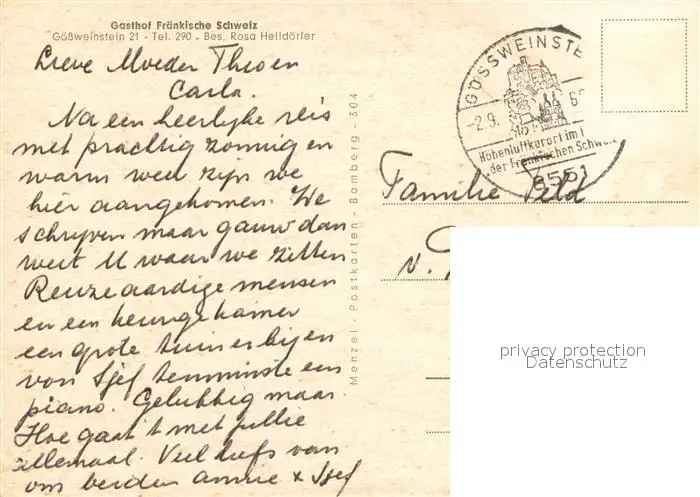 Gasthof Fränkische Schweiz
Gößweinstein 21 - Tel. 290 - Bes. Rosa Helldörfer
Lieve Moeder Theo en
Carla.
Na een heerlijke reis
met prachtig zonnig en
warm weer zijn we
hier aangekomen. We
schrijven maar gauw dan
weet U waar we zitten
Reuze aardige mensen
en een heunge kamer
een grote tuin er bij en
van Sjef tenminste een
piano. Gelukkig maar
Hoe gaat 't met jullie
allemaal. Veel liefs van
om beiden Annie x Sjef
Menzel - Postkarten - Bamberg - 304
GÖSSWEINSTE
-2.9.
6
Höhenluftkurort im
der Fränkischen Schweiz
8551
Familie Veld
v.
privacy protection
Datenschutz